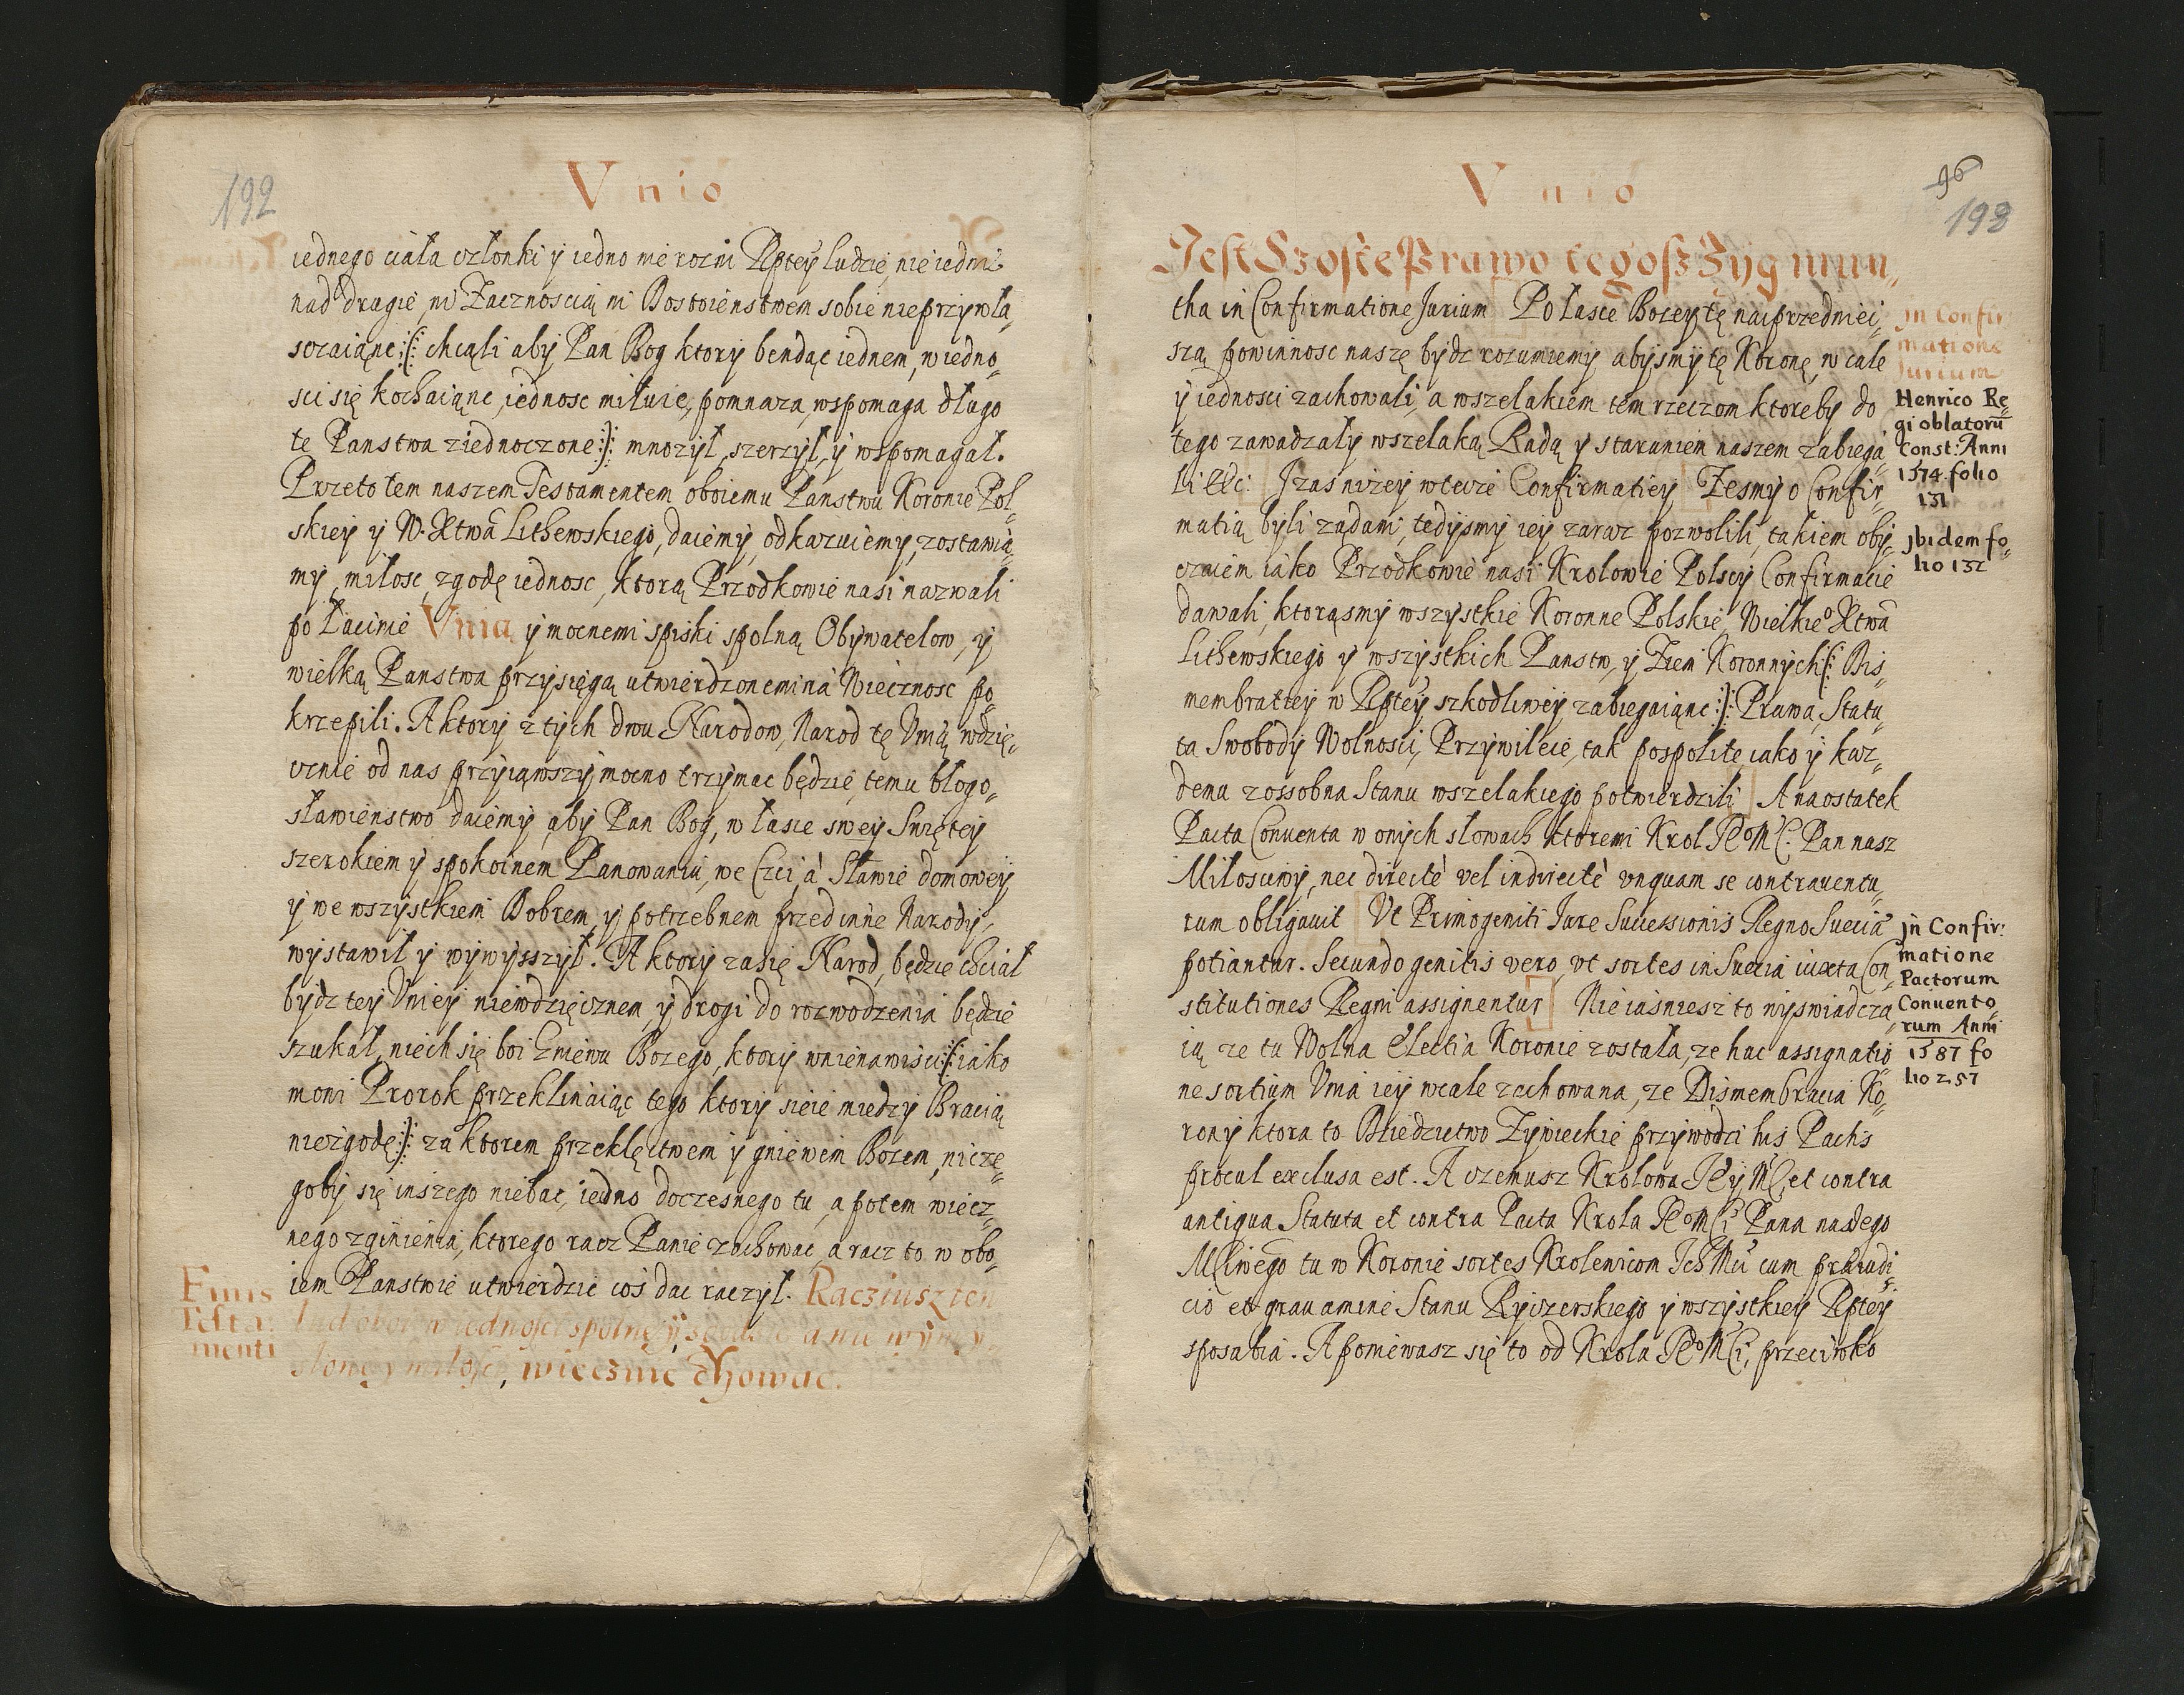 192
Vnio
iednego ciała członki y iedno nie rozni Rptey ludzie, nie iedni
nad drugie, ni Zacznoscią ni Dostoienstwem sobie nieprzywła„
sczaiąnc :(: chcąli aby Pan Bog ktory bendąc iednem, w iedno„
sci się kochaiąnc, iednosc miłuie, pomnaza, wspomaga długo
te Panstwa ziednoczone :): mnozył, szerzył, y wspomagał.
Przeto tem naszem Testamentem oboiemu Panstwu Koronie Pol„
skiey y W. Xtwa Lithewskiego, daiemy, odkazuiemy, zostawia„
my, miłosc, zgodę iednosc, ktorą Przodkowie nasi nazwali
po Łacinie Vnią y mocnemi spiski spolną Obywatelow, y
wielką Panstwa przysięgą utwierdzonemi na Wiecznosc po„
krzepili. A ktory z tych dwu Narodow, Narod tę Vnią wdzię„
cznie od nas przyiąwszy mocno trzymac będzie, temu błogo„
sławienstwo daiemy, aby Pan Bog, w łasce swey Swiętey
szerokiem y spokoinem Panowaniu, we Czci, à Sławie domowey
y we wszystkiem Dobrem, y potrzebnem przed inne Narody,
wystawił y wywysszył. A ktory zasię Narod, będzie chciał
bydz tey Vniey niewdzięcznem, y drogi do rozwodzenia będzie
szukał, niech się boi Gniewu Bozego, ktory w nienawisci :(: iako
mowi Prorok przeklinaiąc tego ktory sieie miedzy Bracią
niezgodę :): za ktorem przeklęctwem y gniewem Bozem, nicze„
goby się inszego niebac, iedno doczesnego tu, a potem wiecz„
nego zginienia, ktorego racz Panie zachowac, a racz to w obo„
iem Panstwie utwierdzic cos dac raczył. Racziusz ten
lud oboi w iednosci spolney, y swobodzie a nie wymy„
słoney miłosci, wiecznie chowac.
Finis
Testa„
menti
Vnio
96
193
Jest Szoste Prawo tegosz Zygmun„
tha in Confirmatione Jurium Po łasce Bozey tę naiprzedniei„
szą powinnosc naszę bydz rozumiemy abysmy tę Koronę, w cale
y iednosci zachowali, a wszelakiem tem rzeczom ktoreby do
tego zawadzały wszelaką Radą y staraniem naszem zabiega„
li &c: Jzas nizey w teyze Confirmatiey Zesmy o Confir„
matią byli ządani, tedysmy iey zaraz pozwolili, takiem oby„
czaiem iako Przodkowie nasi Krolowie Polscy Confirmacie
dawali, ktorąsmy wszystkie Koronne Polskie, Wielkieo Xtwa
Lithewskiego y wszystkich Panstw, y Ziem Koronnych :(: Dis„
membratiey w Rptey szkodliwey zabiegaiąnc :): Prawa, Statu„
ta Swobody Wolnosci, Przywileie, tak pospolite, iako y kaz„
demu zossobna Stanu wszelakiego potwierdzili A naostatek
Pacta Conuenta w onych słowach ktoremi Krol JEoMC. Pan nasz
Miłosciwy, nec directè vel indirectè vnquam se contrauentu„
rum obligauit Vt Primogeniti Jure Successionis Regno Suecia
potiantur. Secundo genitis vero, vt sortes in Suecia iuxta Con„
stitutiones Regni assignentur Nieiasniesz to wyswiadcza„
ią ze tu Wolna Electia Koronie została, ze hac assignatio„
ne sortium Vnia iey wcale zachowana, ze Dismembracia Ko„
rony ktora to Dziedzictwo Zywieckie przywodzi his Pactis
procul exclusa est. A czemusz Krolowa JEyMC, et contra
antiqua Statuta et contra Pacta Krola JEoMCi Pana naszego
MCiwego tu w Koronie sortes Krolewicom Ich Mci cum præiudi„
cio et grauamine Stanu Rycerskiego y wszystkiey Rptey
sposabia. A poniewasz się to od Krola JEoMCi, przeciwko
Jn Confir
matione
Jurium
Henrico Re„
gi oblatorū
Const: Anni
1574. folio
131
Jbidem fo„
lio 132
Jn Confir:
matione
Pactorum
Conuento„
rum Anni
1587 fo
lio 257